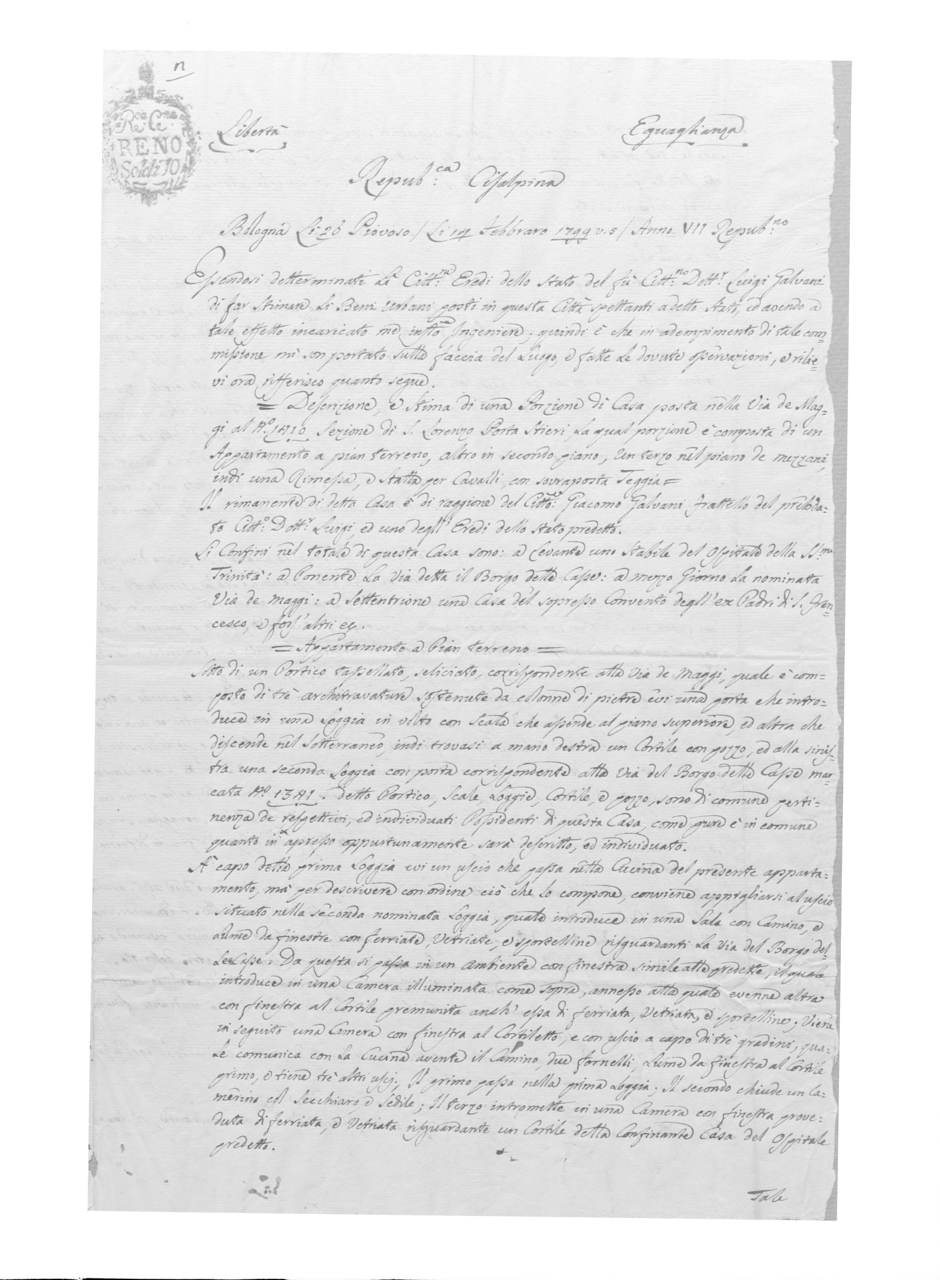 n
Rep.ca Ci.na
RENO
Soldi 10
Libertà Eguaglianza
Repub:ca Cisalpina
Bologna Li 26 Piovoso / Li 14 Febbraro 1799 v. s / Anno VII Repub:no
Essendosi detterminate Li Citt:ni Eredi dello Stato del fù Citt:no Dott:r Luigi Galvani
di far Stimare Li Beni Urbani posti in questa Città spettanti a detto Stato, ed avendo a
tale effetto incaricato me infr:o Ingeniere; quindi è che in adempimento di tale com=
missione mi son portato sulla faccia del Luogo, e fatte le dovute osservazioni, e rilie=
vi ora rifferisco quanto segue.
= Descrizione, e Stima di una Porzione di Casa posta nella Via de Mag=
gi al N:o 1810 Sezione di S. Lorenzo Porta Stieri, La qual porzione è composta di un
Appartamento a pian terreno, altro in secondo piano, Un terzo nel piano de mezzani,
indi una Rimessa, e Stalla per Cavalli, con sovraposta Teggia =
Il rimanente di detta Casa è di raggione del Citt:o Giacomo Galvani Fratello del preloda=
to Citt:o Dott:r Luigi ed uno degl' Eredi dello Stato predetto.
Li Confini nel totale di questa Casa sono: a Levante uno Stabile del Ospitale della SS:ma
Trinità: a Ponente La Via detta il Borgo delle Casse: a mezzo Giorno La nominata
Via de Maggi: a Settentrione una Casa del soppresso Convento degl' ex Padri di S. Fran=
cesco, e fors' altri ec.
= Appartamento a Pian terreno =
Sotto di un Portico tassellato, seliciato, corrispondente alla Via de Maggi, quale è com=
posto di tre architravature sostenute da collonne di pietre èvi una porta che intro=
duce in una Loggia in volto con Scala che ascende al piano superiore, ed altra che
discende nel sotterraneo, indi trovasi a mano destra un Cortile con pozzo, ed alla sinis=
tra una seconda Loggia con porta corrispondente alla Via del Borgo delle Casse mar=
cata N:o 1341. detto Portico, Scale, Loggie, Cortile, e pozzo, sono di comune perti=
nenza de respettivi, ed individuati Possidenti di questa Casa, come pure è in comune
quanto in appresso opportunamente sarà descritto, ed individuato.
A capo della prima Loggia evi un uscio che passa nella Cucina del presente apparta=
mento, mà per descrivere con ordine ciò che lo compone, conviene appigliarsi al uscio
situato nella seconda nominata Loggia, quale introduce in una Sala con Camino, e
Lume da finestre con ferriate, Vetriate, e sportelline risguardanti La Via del Borgo del=
le Casse: Da questa si passa in un Ambiente con finestra simile alle predette, il quale
introduce in una Camera illuminata come sopra, annesso alla quale evenne altra
con finestra al Cortile premunita anch' essa di ferriata, Vetriata, e sportelline; Viene
in seguito una Camera con finestra al Cortiletto, e con uscio a capo di trè gradini, qua=
le comunica con La Cucina avente il Camino, due fornelli, Lume da finestra al Cortile
primo, e tiene trè altri uscj. Il primo passa nella prima Loggia. Il secondo chiude un Ca=
merino col Secchiaro e Sedile; Il terzo intromette in una Camera con finestra prove=
duta di ferriata, e Vetriata risguardante un Cortile della Confinante Casa del Ospitale
predetto.
Tale